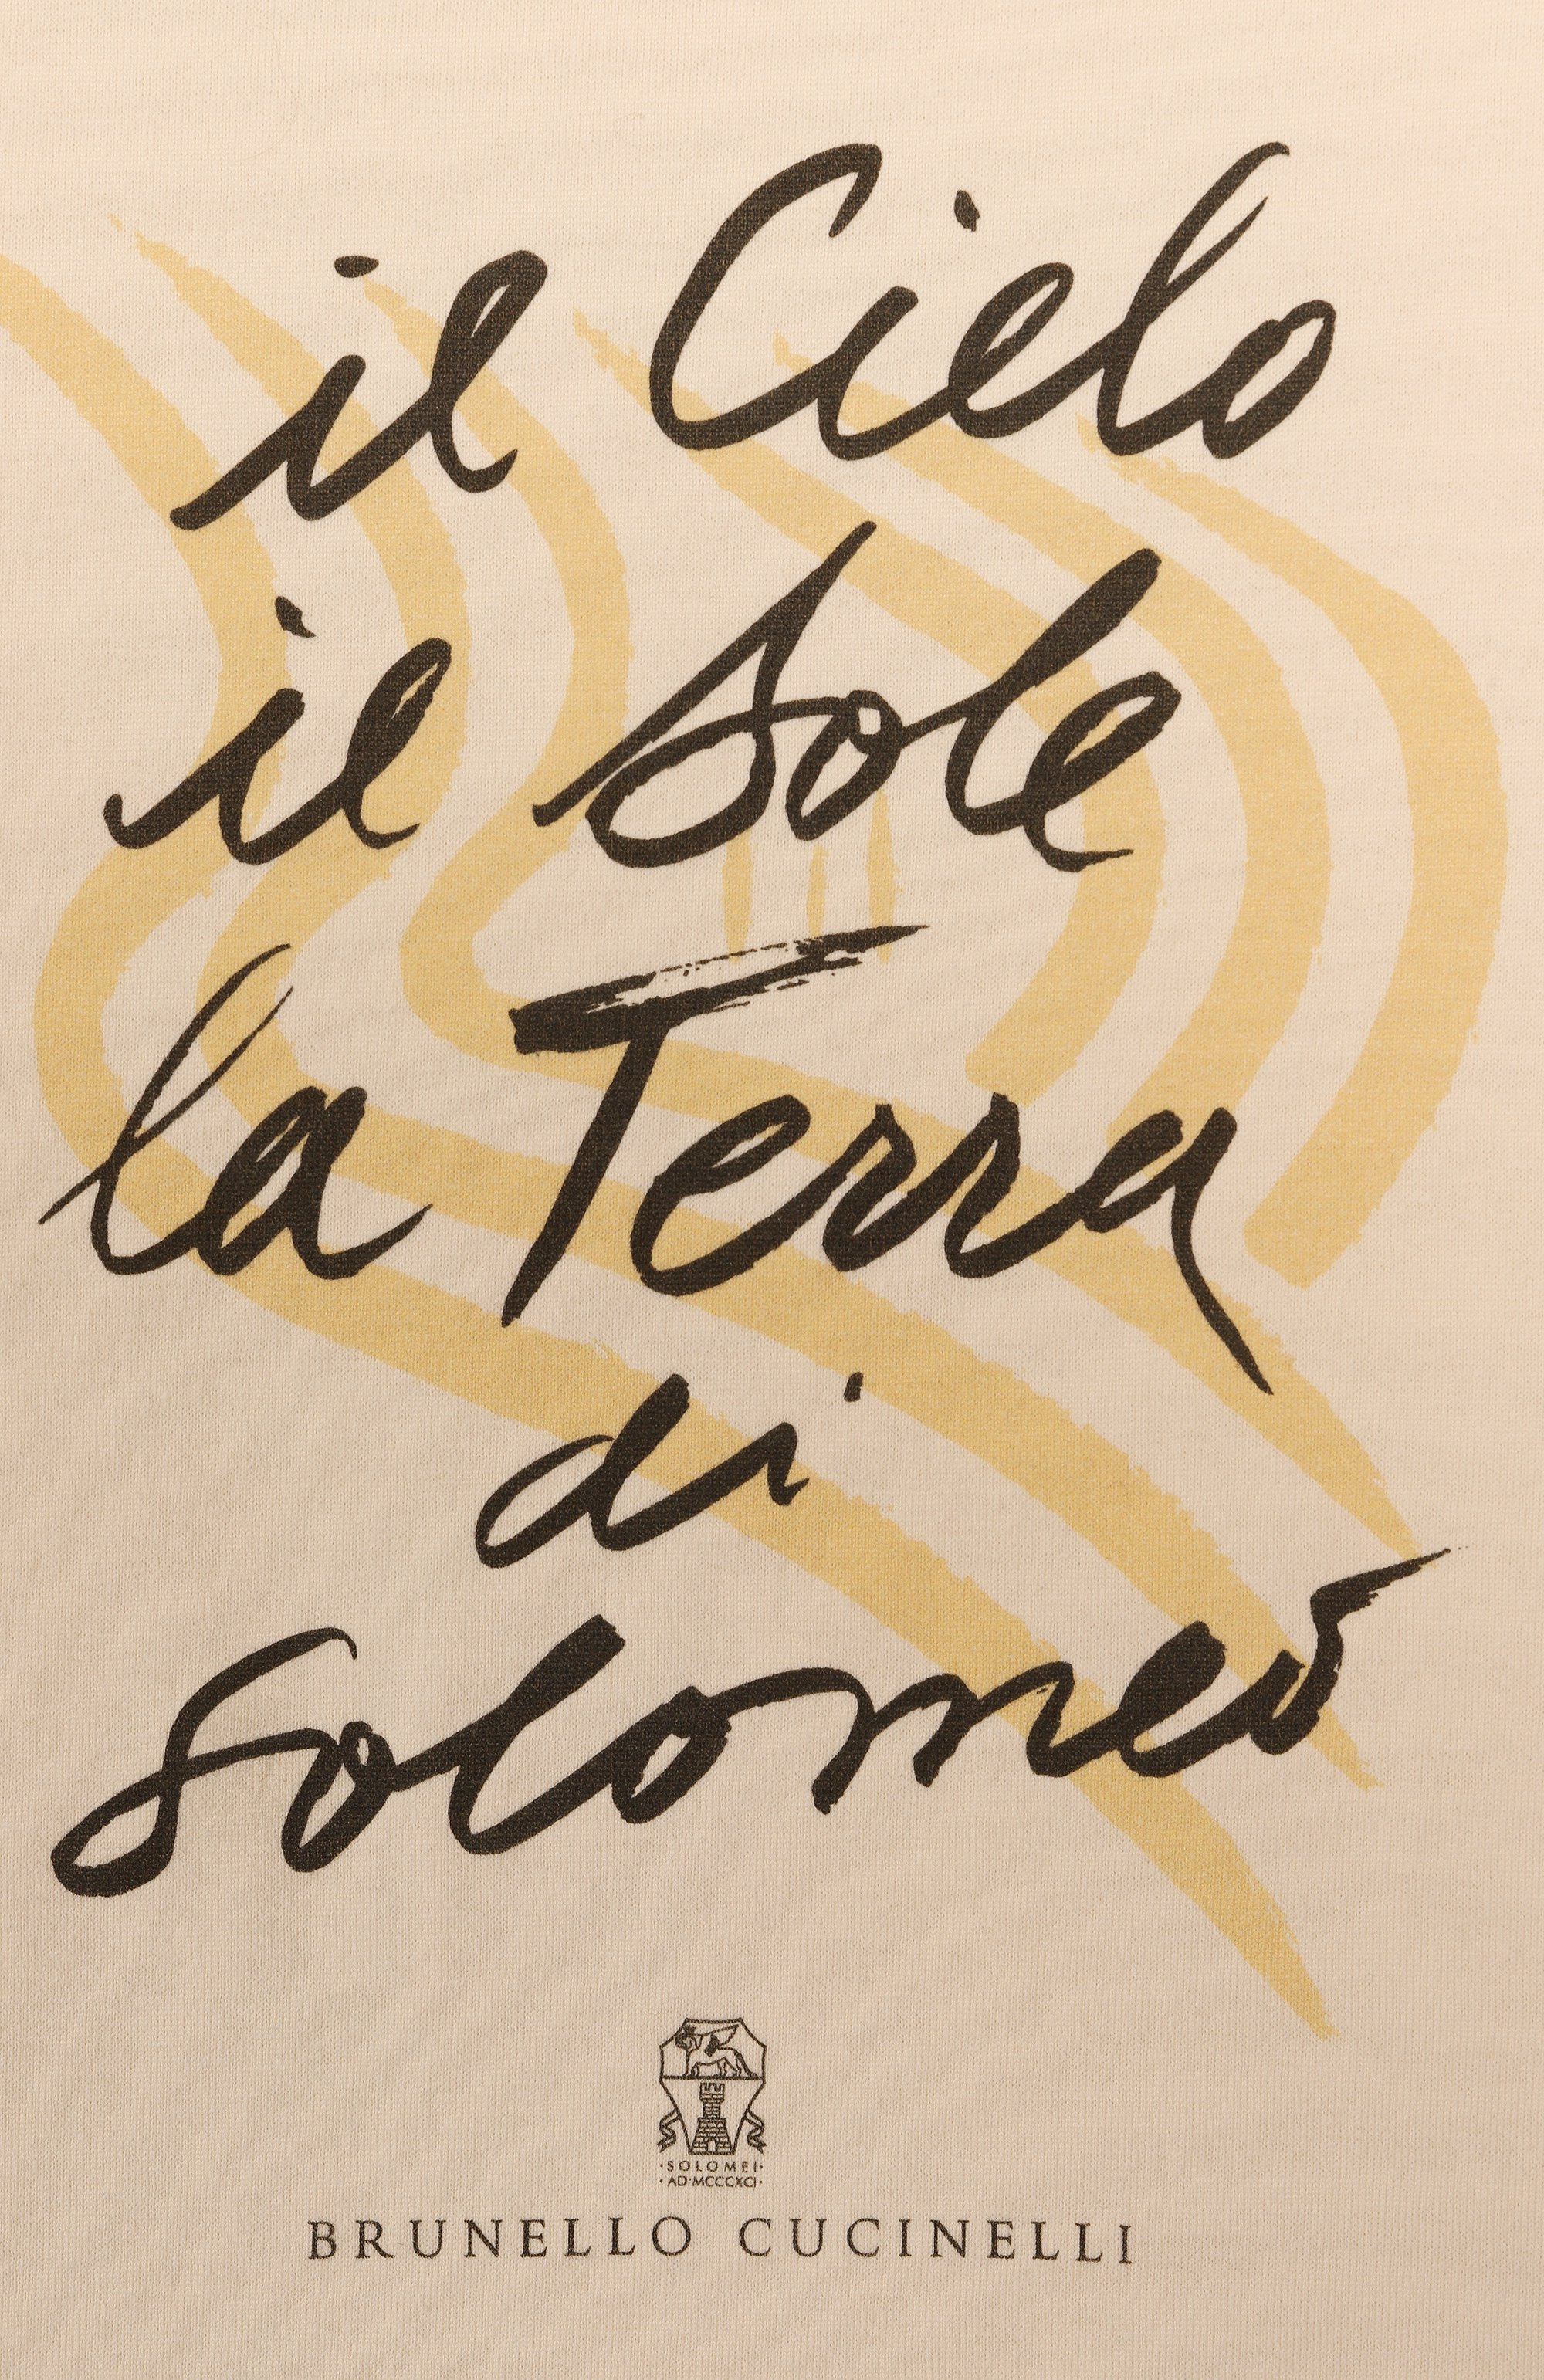 il Cielo
il Sole
la Terra
di
solomeo
·SOLOMEI·
·AD·MCCCXCI·
BRUNELLO CUCINELLI